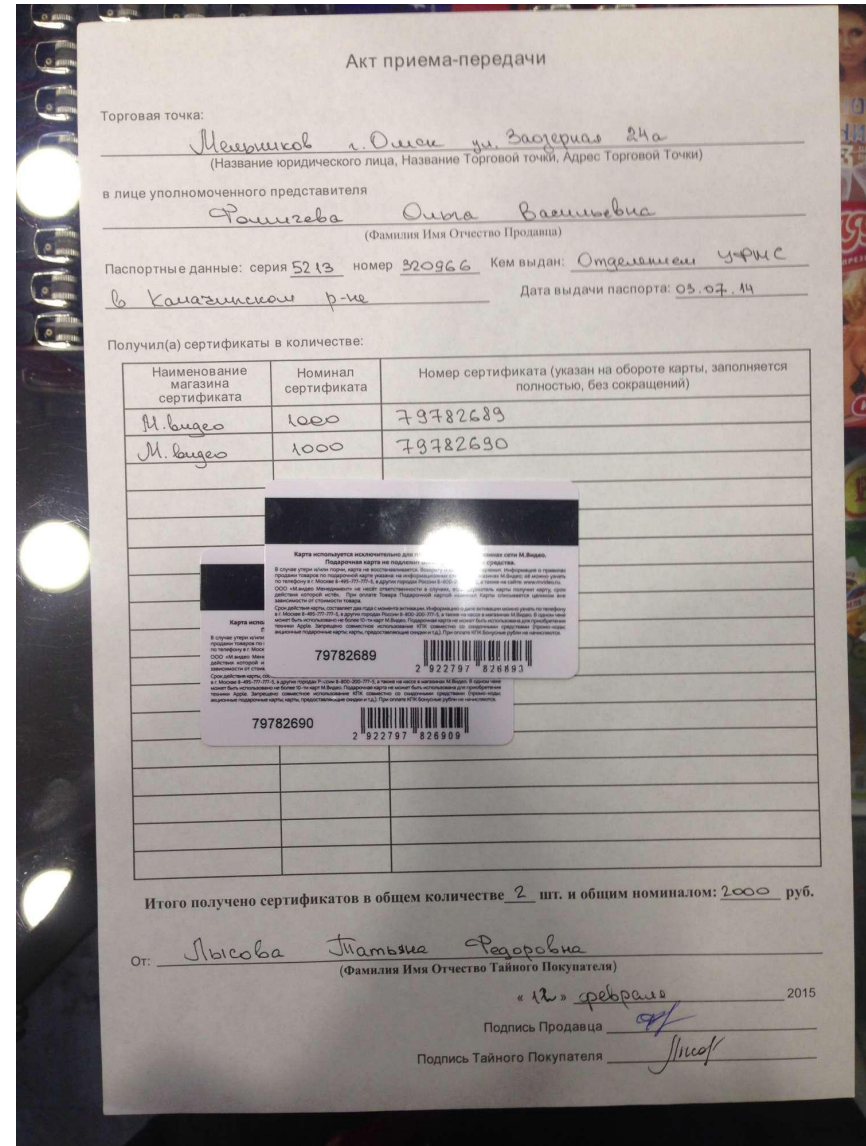 Акт приема-передачи
Торговая точка:
Мельников г. Омск ул. Заозерная 24а
(Название юридического лица, Название Торговой точки, Адрес Торговой Точки)
в лице уполномоченного представителя
Фомичева Ольга Васильевна
(Фамилия Имя Отчество Продавца)
Паспортные данные: серия 5213 номер 320966 Кем выдан: Отделением УФМС
в р-не Дата выдачи паспорта: 03.07.14
Получил(а) сертификаты в количестве:
Наименование магазина сертификата Номинал сертификата Номер сертификата (указан на обороте карты, заполняется полностью, без сокращений)
М.видео 1000 79782689
М.видео 1000 79782690
Карта используется исключительно для сети М.Видео.
Подарочная карта не подлежит средства.
79782689
2 922797 826893
79782690
2 922797 826909
Итого получено сертификатов в общем количестве 2 шт. и общим номиналом: 2000 руб.
От: Лысова Татьяна Федоровна
(Фамилия Имя Отчество Тайного Покупателя)
« 12 » февраля 2015
Подпись Продавца
Подпись Тайного Покупателя